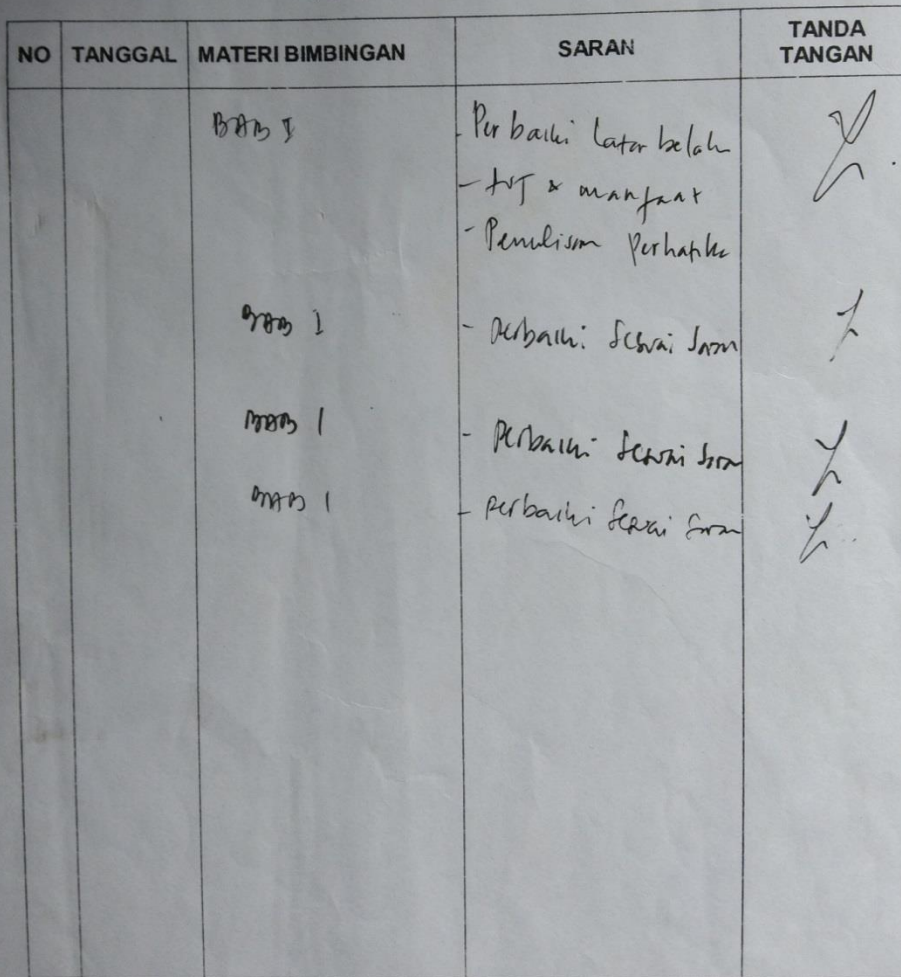 NO TANGGAL MATERI BIMBINGAN SARAN TANDA TANGAN
BAB I - Perbaiki latar belak
- tuj & manfaat
- Penulisan perhatika
BAB I - perbaiki sesuai saran
BAB I - perbaiki sesuai saran
BAB I - perbaiki sesuai saran